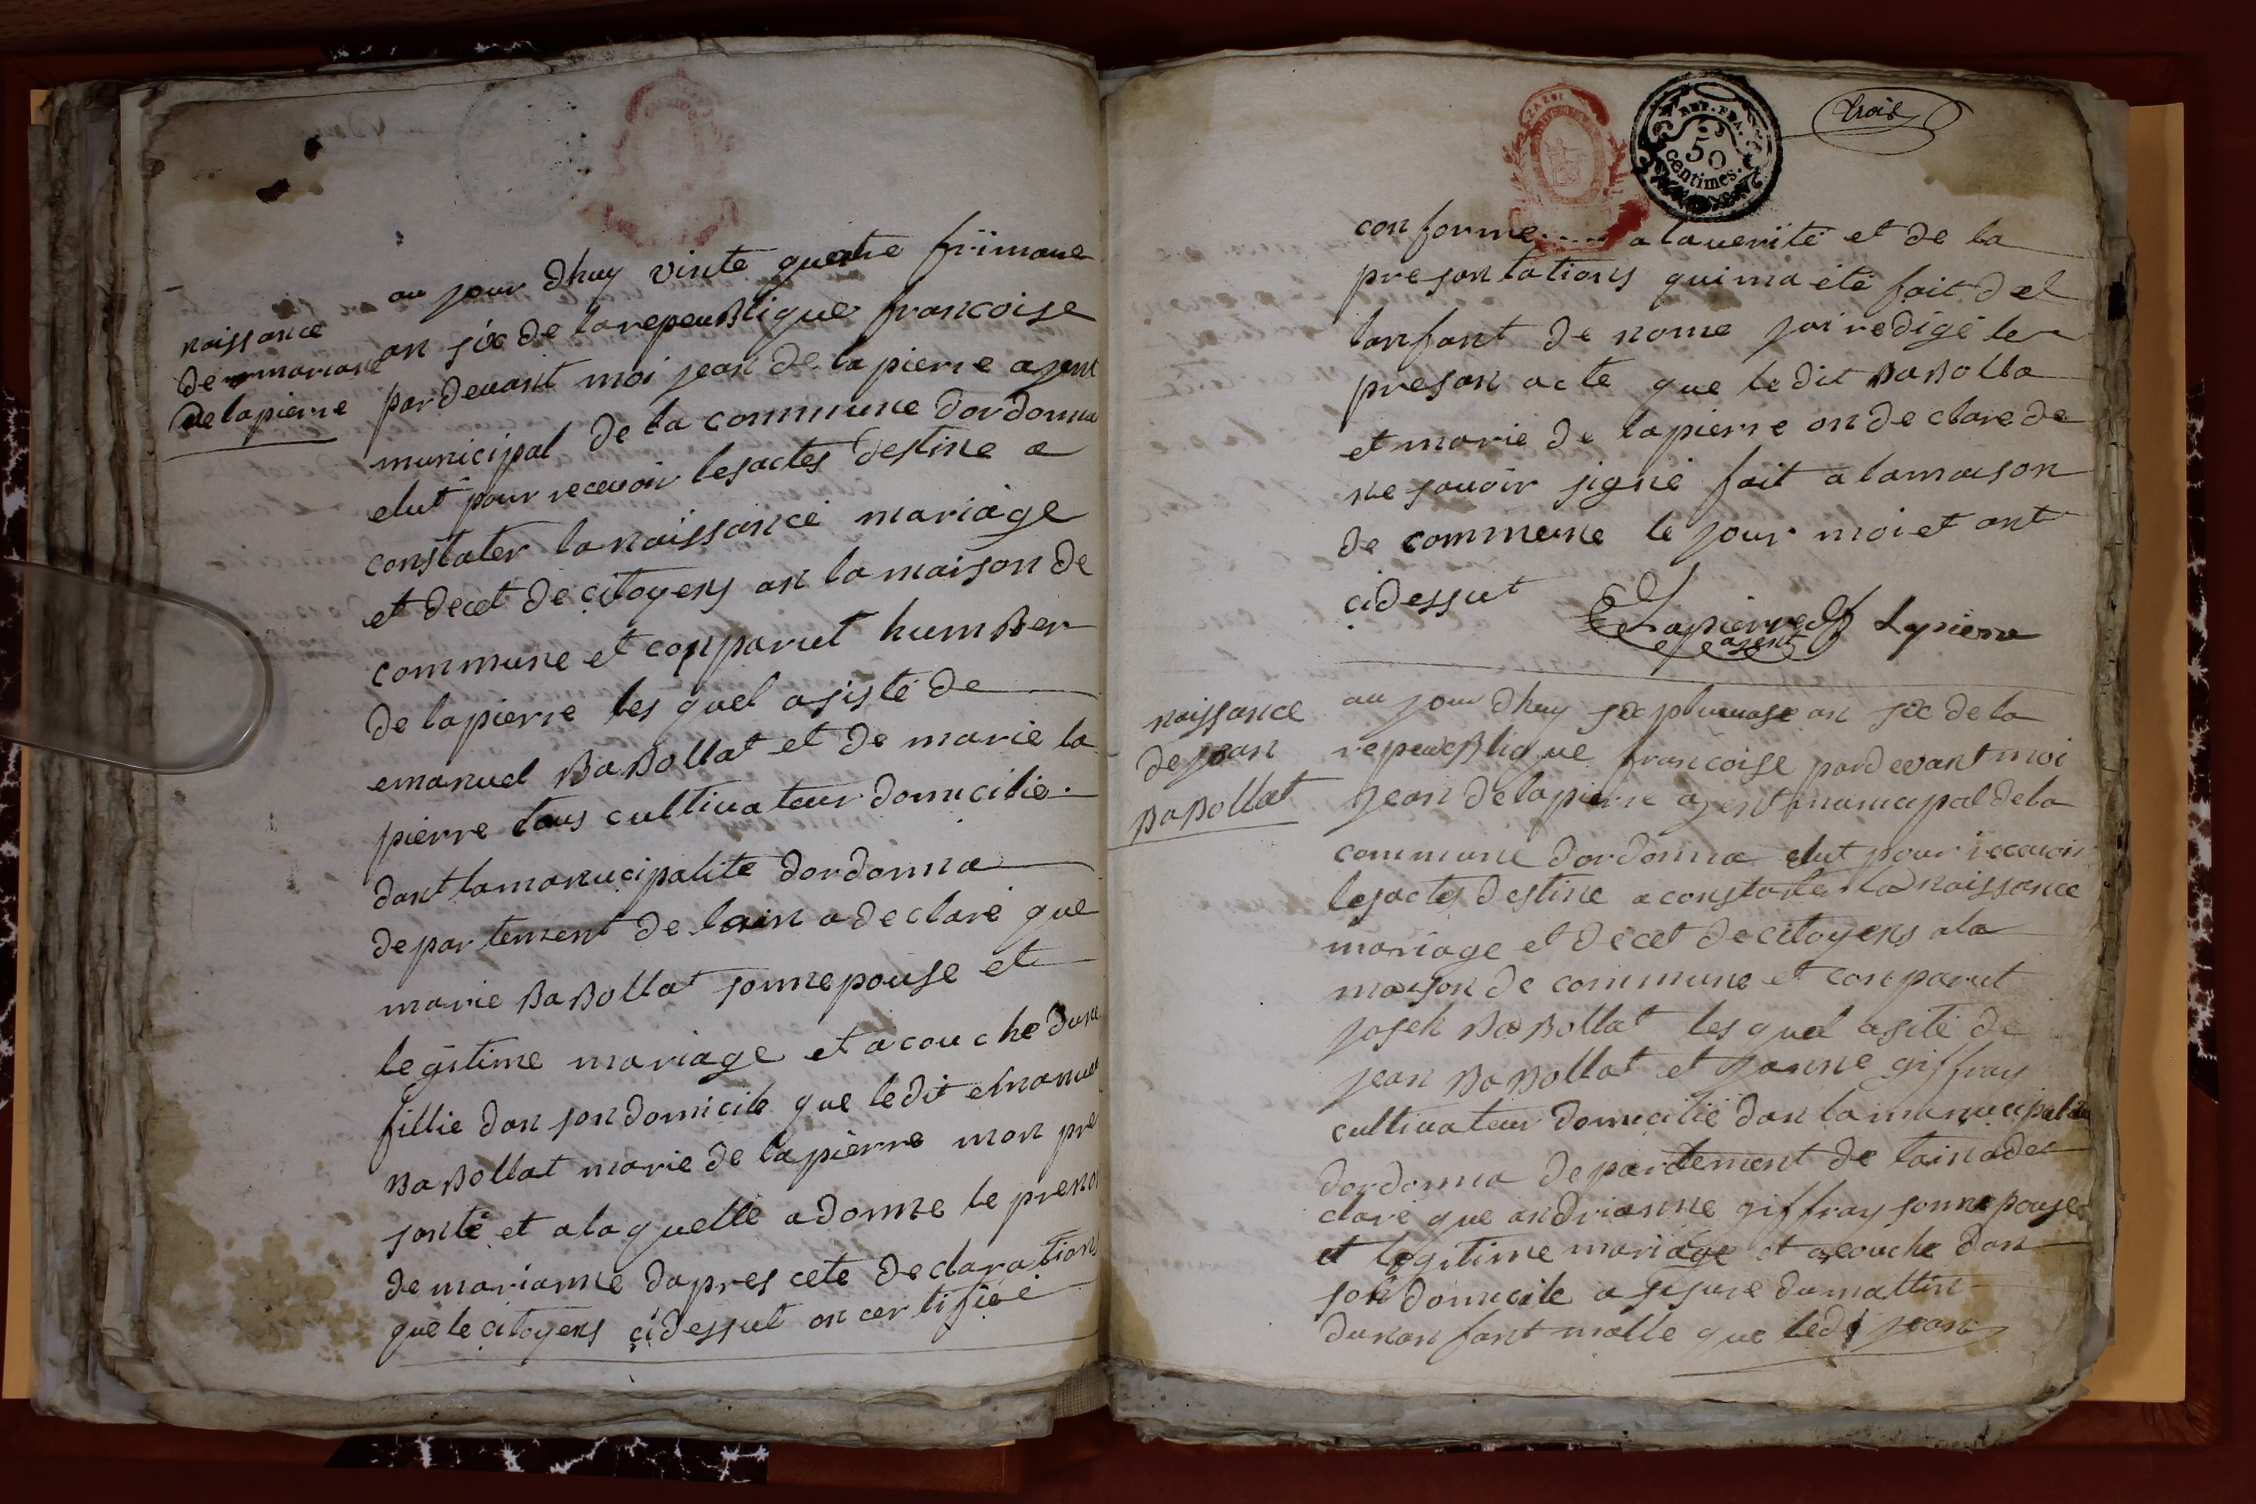 naissance
de mariane
de lapierre
au jour dhuy vinte quatre frimaue
an six de la repeublique francoise
par devant moi jean de la pierre agent
municipal de la commune dordonna
elut pour recevoir les actes destine a
constater la naissance mariage
et decet de citoyens an la maison de
commune et conparut humber
de lapierre les quel asisté de
emanuel Babollat et de marie la
pierre tous cultivateur domicilie
dant la manucipalite dordonna
departement de lain a declaré que
marie Babollat sonnepouse et
legitime mariage et acouche dune
fillie dan son domicile que ledit emanuel
Babollat marie de lapierre mon pre
sonté et a laquelle a donne le prenon
de marianne dapres cete declaration
que le citoyens cidessut on certifieé
trois
REP. FRA.
50
centimes.
conforme a la verité et de la
presontations qui ma eté fait del
lanfant de nome jai redigé le
preson acte que ledit Babolla
et marie de lapierre on declare de
ne savoir signé fait a la maison
de commune le jour moi et ant
cidessut
Delapierre Lapierre
agent
naissance
de jean
Babollat
au jour dhuy six pluviose an six de la
repeublique francoise pardevant moi
jean de lapierre agent manucipal de la
commune dordonna elut pour recevoir
les actes destine a constater la naissance
mariage et decet de citoyens a la
maison de commune et conparut
joseh Babollat les quel asité de
jean Babollat et janne giffray
cultivateur domicilié dan la manucipalite
dordonna departement de lain a de
claré que andrianne giffray sonnepouse
et legitime mariage et acouche dan
son domicile a sisure du mattin
dunan fant malle que ledi jean